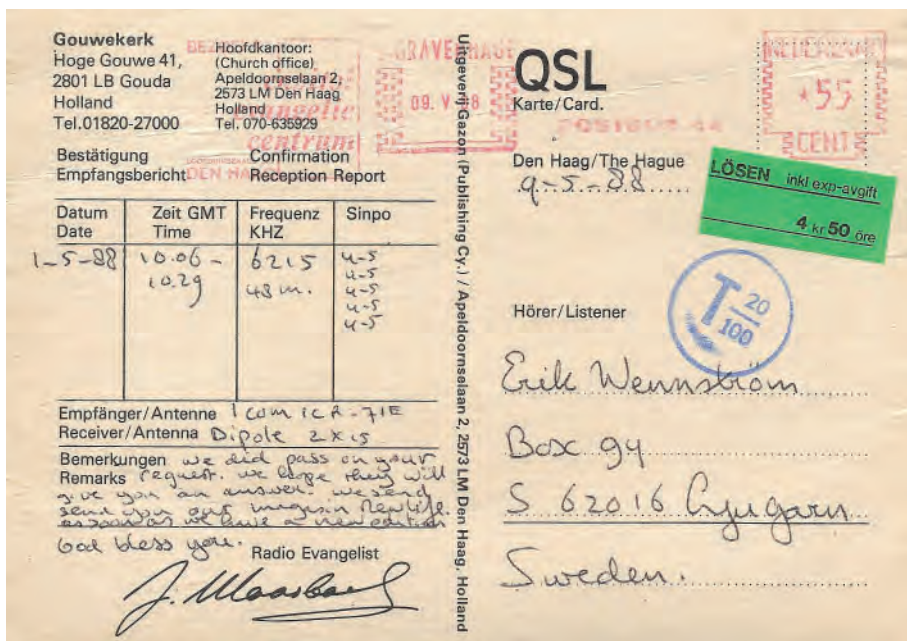 Gouwekerk
Hoge Gouwe 41,
2801 LB Gouda
Holland
Tel.01820-27000
Hoofdkantoor:
(Church office)
Apeldoornselaan 2,
2573 LM Den Haag
Holland
Tel. 070-635929
centrum
DEN HAAG
Bestätigung
Empfangsbericht
Confirmation
Reception Report
Datum
Date
Zeit GMT
Time
Frequenz
KHZ
Sinpo
1-5-88
10.06-
10.29
6215
48 m.
4-5
4-5
4-5
4-5
4-5
Empfänger/Antenne Icom ICR-71E
Receiver/Antenna Dipole 2x15
Bemerkungen we did pass on your
Remarks request. we hope they will
give you an answer. we send
send you our magazin New Life
as soon as we have a new edition
God bless you.
Radio Evangelist
J. Maasbach
Uitgeverij Gazon (Publishing Cy.) / Apeldoornselaan 2, 2573 LM Den Haag, Holland
GRAVENHAGE
09. V. 88
NEDERLAND
55
CENT
QSL
Karte/Card.
Den Haag/The Hague
9-5-88
LÖSEN inkl exp-avgift
4 kr 50 öre
T 20
100
Hörer/Listener
Erik Wennström
Box 94
S 62016 Ljugarn
Sweden.